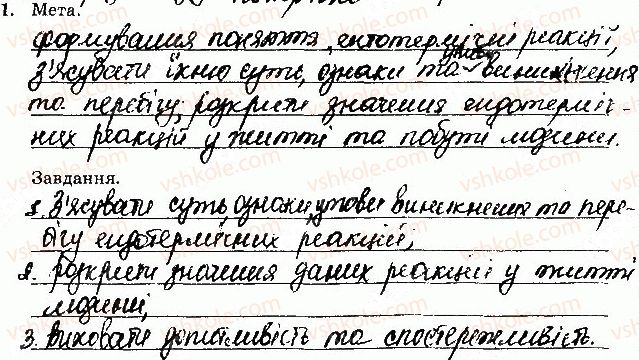 1. Мета.
формування поняття, ентотермічні реакцій,
з'ясувати їхню суть, ознаки та умови виникнення
та перебігу; розкрити значення ендотерміч-
них реакцій у житті та побуті людини.
Завдання.
1. З'ясувати суть, ознаки, умови виникнення та пере-
бігу ендотермічних реакцій;
2. розкрити значення даних реакцій у житті
людини;
3. Виховати допитливість та спостережливість.